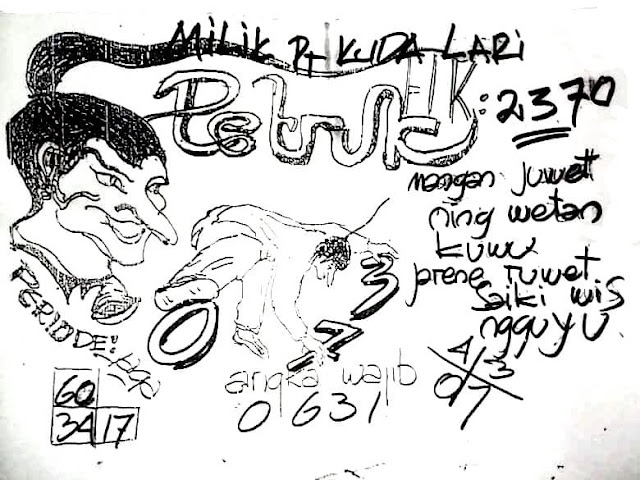 MILIK Pt KUDA LARI
Petruk HK: 2370
mangan juwet
ning wetan
kuwu
prene ruwet
saiki wis
ngguyu
PERIODE:
0 7 3
4/3
07
angka wajib
0631
60
34 17